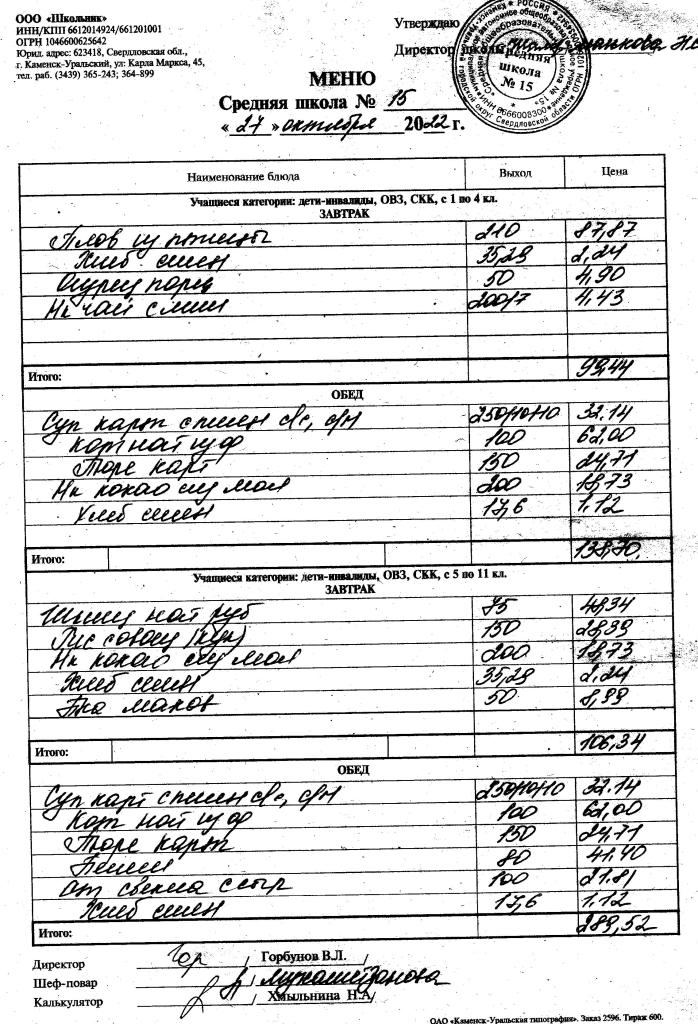 ООО «Школьник»
ИНН/КПП 6612014924/661201001
ОГРН 1046600625642
Юрид. адрес: 623418, Свердловская обл.,
г. Каменск-Уральский, ул: Карла Маркса, 45,
тел. раб. (3439) 365-243; 364-899
Утверждаю
Директор школы
Средняя
школа
№ 15
МЕНЮ
Средняя школа № 15
«27» октября 2022 г.
Наименование блюда Выход Цена
Учащиеся категории: дети-инвалиды, ОВЗ, СКК, с 1 по 4 кл.
ЗАВТРАК
Плов из птицы 210 87,87
Хлеб пшен 35,29 2,24
Огурец порц 50 4,90
Нк чай с лим 200/7 4,43
Итого: 99,44
ОБЕД
Суп карт с пшен с/с, с/м 250/10/10 32.14
Кот нат из ф 100 62,00
Пюре карт 150 24,71
Нк какао из мол 200 18,73
Хлеб пшен 17,6 1.12
Итого: 138,70
Учащиеся категории: дети-инвалиды, ОВЗ, СКК, с 5 по 11 кл.
ЗАВТРАК
нат руб 75 48,34
Рис с овощ (кук) 150 28,39
Нк какао из мол 200 18,73
Хлеб пшен 35,29 2,24
50 8,99
Итого: 106,34
ОБЕД
Суп карт с пшен с/с, с/м 250/10/10 32.14
Кот нат из ф 100 62,00
Пюре карт 150 24,71
80 41,40
от свекла с сыр 100 21.81
Хлеб пшен 17,6 1.12
Итого: 289,52
Директор / Горбунов В.Л. /
Шеф-повар /
Калькулятор / Хмыльнина Н.А/
ОАО «Каменск-Уральская типография». Заказ 2596. Тираж 600.